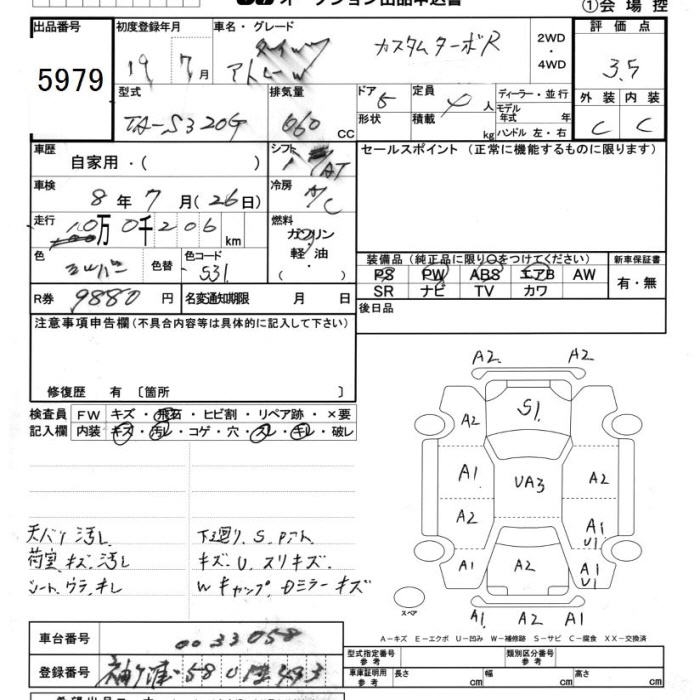 オークション出品申込書
①会場控
出品番号
5979
初度登録年月
19 7月
車名・グレード
ダイハツ
アトレーW
カスタムターボR
2WD
・
4WD
評価点
3.5
外装 内装
C C
型式
TA-S320G
排気量
660 cc
ドア 5
形状
定員 4人
積載 kg
ディーラー・並行
モデル年式 年
ハンドル 左・右
車歴
自家用・( )
シフト
AT
セールスポイント (正常に機能するものに限ります)
車検
8年7月(26日)
冷房
A/C
走行
10万0千206km
燃料
ガソリン
軽油
・
( )
色
シルバー
色替
色コード
S31
装備品(純正品に限り○をつけてください)
PS PW ABS エアB AW
SR ナビ TV カワ
新車保証書
有・無
R券 9880円
名変通知期限 月 日
後日品
注意事項申告欄(不具合内容等は具体的に記入して下さい)
修復歴 有 〔箇所 〕
検査員
記入欄
FW キズ・飛石・ヒビ割・リペア跡・×要
内装 キズ・汚レ・コゲ・穴・スレ・キレ・破レ
天バリ汚レ
荷室キズ、汚レ
シート、ウラ、キレ
下廻り S.PアトA
キズ.U.スリキズ.
Wキャップ、Dミラーキズ
A2 A2
A2 S1
A1 UA3 A2
A2 A1 U1
A1 A2 A1 U1
A1 A2 A1
スペア
A-キズ E-エクボ U-凹み W-補修跡 S-サビ C-腐食 XX-交換済
車台番号 0033058
登録番号 袖ヶ浦 580 493
型式指定番号
参考
類別区分番号
参考
車庫証明用
参考
長さ cm
幅 cm
高さ cm